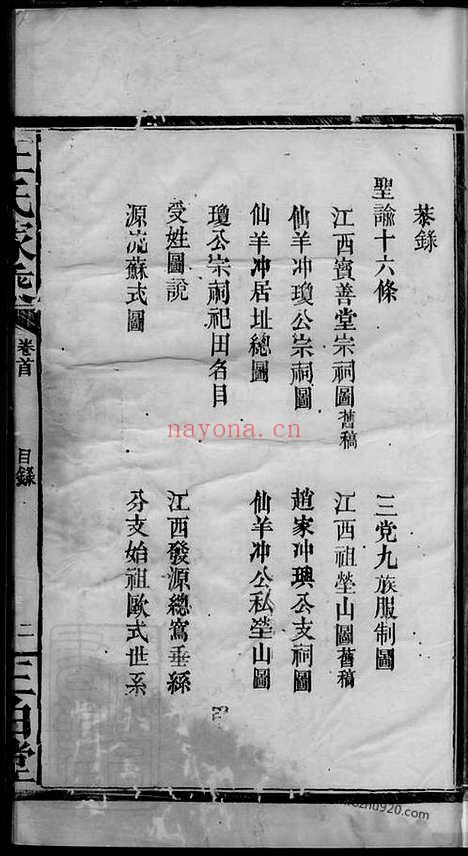 恭錄
聖諭十六條
三党九族服制圖
江西寳善堂宗祠圖舊稿
江西祖塋山圖舊稿
仙羊冲瓊公宗祠圖
趙家冲璵公支祠圖
仙羊冲居址總圖
仙羊冲公私塋山圖
瓊公宗祠祀田名目
受姓圖說
江西發源總寫垂絲
源流蘇式圖
分支始祖歐式世系
王氏家乘
卷首
目錄
二
三柏堂
nayona.cn